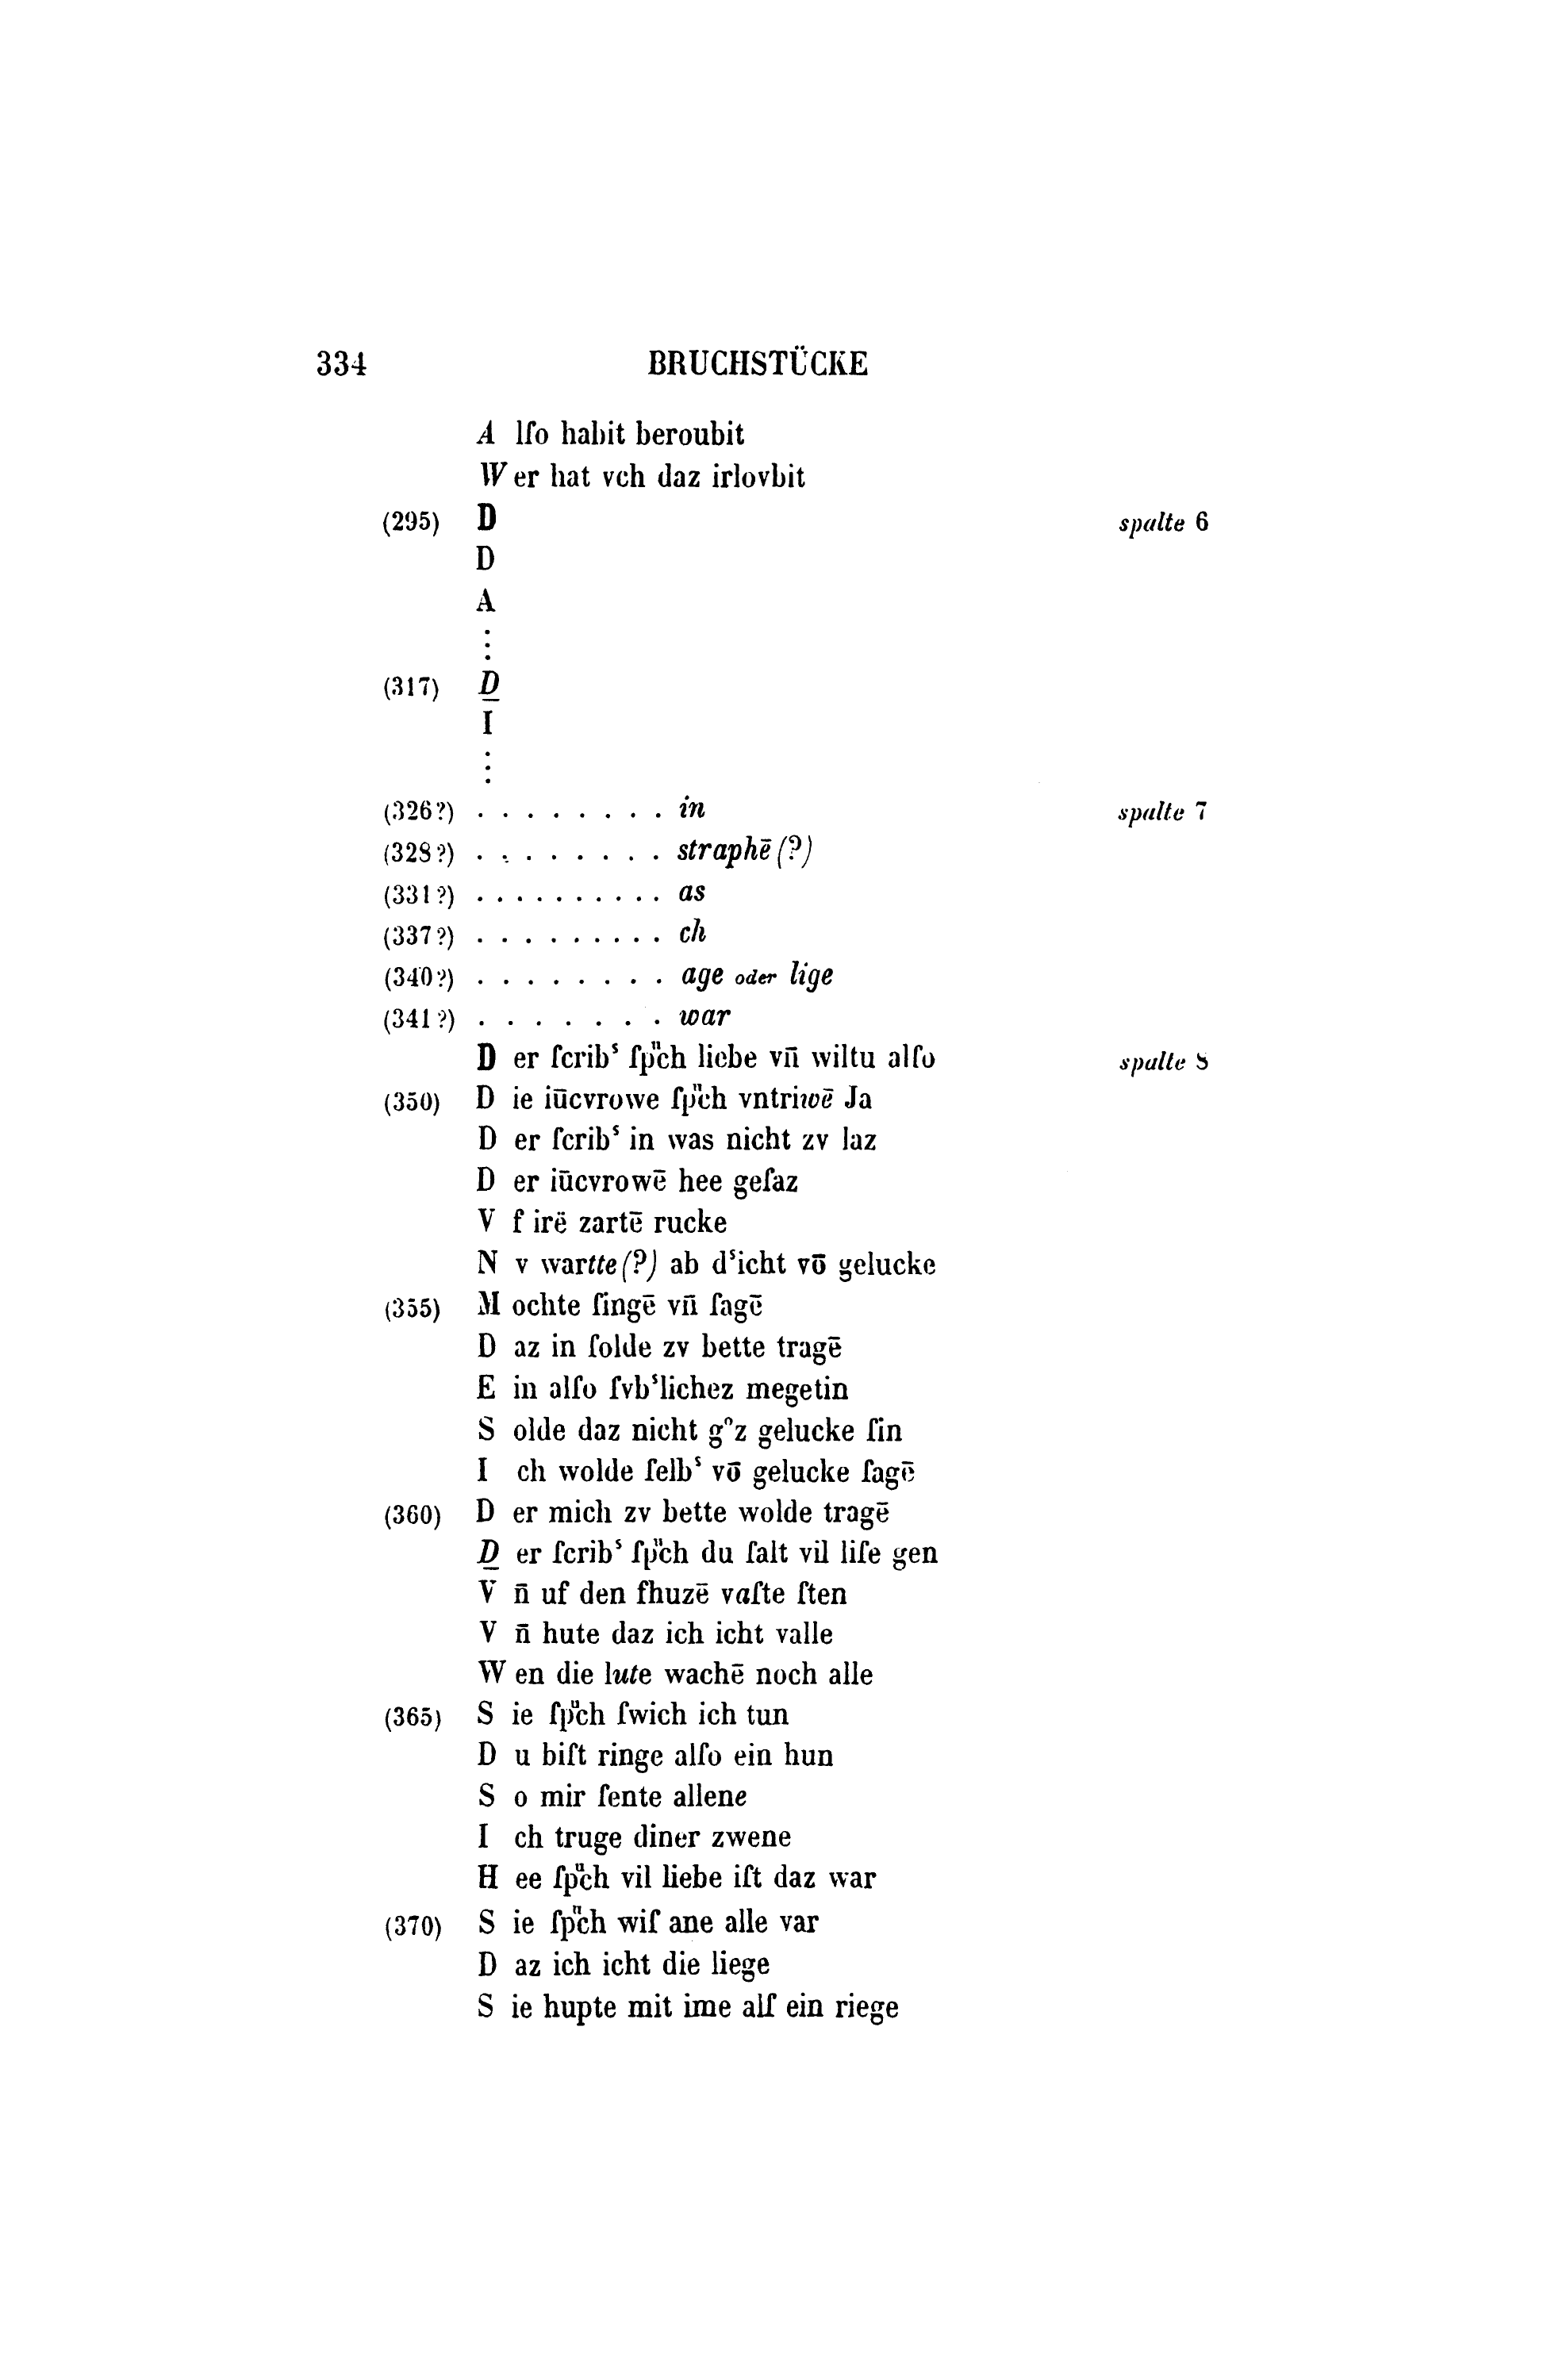 334 BRUCHSTÜCKE
A lſo habit beroubit
W er hat vch daz irlovbit
(295) D spalte 6
D
A
⋮
(317) D
I
⋮
(326?) . . . . . . . . . . in spalte 7
(328?) . . . . . . . . . . straphē (?)
(331?) . . . . . . . . . . as
(337?) . . . . . . . . . . ch
(340?) . . . . . . . . . . age oder lige
(341?) . . . . . . . . . . war
D er ſcribˢ ſpͧch liebe vn̄ wiltu alſo spalte 8
(350) D ie iūcvrowe ſpͧch vntriwē Ja
D er ſcribˢ in was nicht zv laz
D er iūcvrowē hee geſaz
V f irē zartē rucke
N v wartte (?) ab dˢicht vō gelucke
(355) M ochte ſingē vn̄ ſagē
D az in ſolde zv bette tragē
E in alſo ſvbˢlichez megetin
S olde daz nicht gͦz gelucke ſin
I ch wolde ſelbˢ vō gelucke ſagē
(360) D er mich zv bette wolde tragē
D er ſcribˢ ſpͧch du ſalt vil liſe gen
V n̄ uf den fhuzē vaſte ſten
V n̄ hute daz ich icht valle
W en die lute wachē noch alle
(365) S ie ſpͧch ſwich ich tun
D u biſt ringe alſo ein hun
S o mir ſente allene
I ch truge diner zwene
H ee ſpͧch vil liebe iſt daz war
(370) S ie ſpͧch wiſ ane alle var
D az ich icht die liege
S ie hupte mit ime alſ ein riege